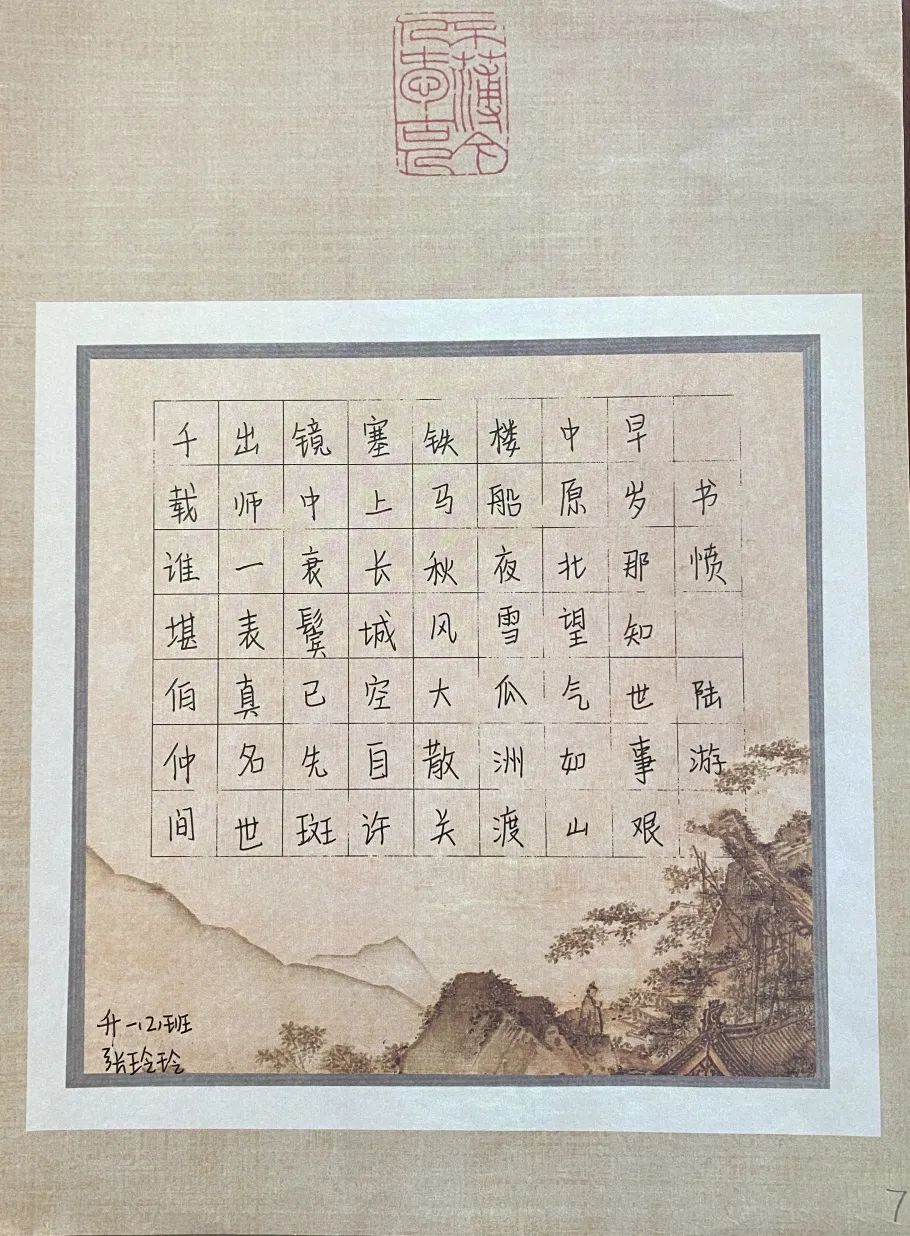 不薄今人爱古人
书愤 陆游
早岁那知世事艰
中原北望气如山
楼船夜雪瓜洲渡
铁马秋风大散关
塞上长城空自许
镜中衰鬓已先斑
出师一表真名世
千载谁堪伯仲间
升一(2)班
张玲玲
7